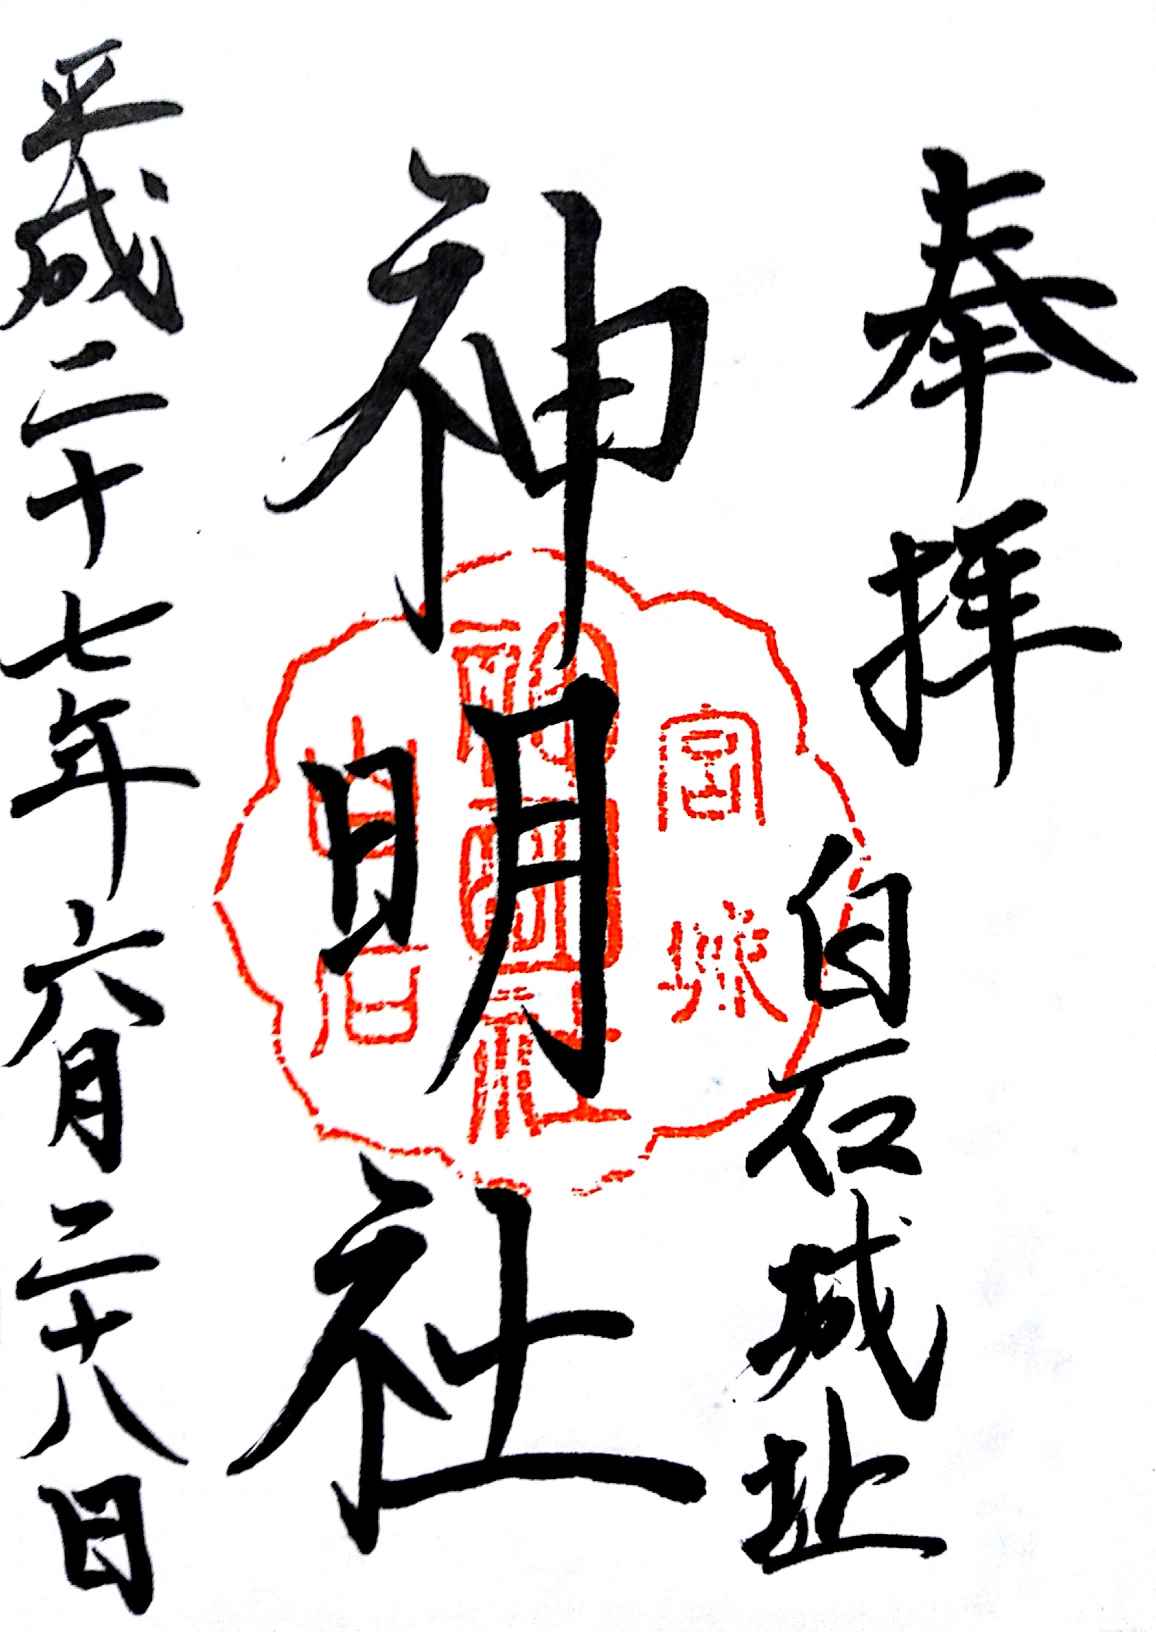 奉拝
白石城址
神明社
宮城
神明社
白石
平成二十七年六月二十八日